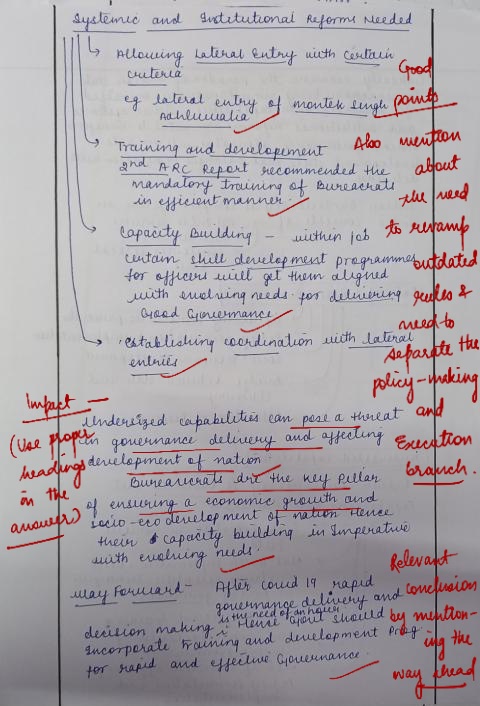 Systemic and Institutional Reforms Needed
Allowing Lateral Entry with certain
criteria
eg lateral entry of Montek Singh
Aahluwalia
Training and developement
2nd ARC Report recommended the
mandatory training of Bureacrats
in efficient manner.
Capacity Building - within job
certain skill development programmes
for officers will get them aligned
with evolving needs for delivering
Good Governance
Establishing coordination with lateral
entries
Good
points
Also mention
about
the need
to revamp
outdated
rules &
need to
separate the
policy-making
and
Execution
branch.
Impact —
(Use proper
headings
in the
answer)
Undersized capabilities can pose a threat
in governance delivery and affecting
development of nation.
Bureaucrats are the key Pillar
of ensuring a economic growth and
socio-eco development of nation Hence
their capacity building in Imperative
with evolving needs.
Way Forward - After covid 19 rapid
governance delivery and
decision making is the need of an hour. Hence Govt should
incorporate Training and development Prog
for rapid and effective Governance.
Relevant
conclusion
by mention-
ing the
way ahead